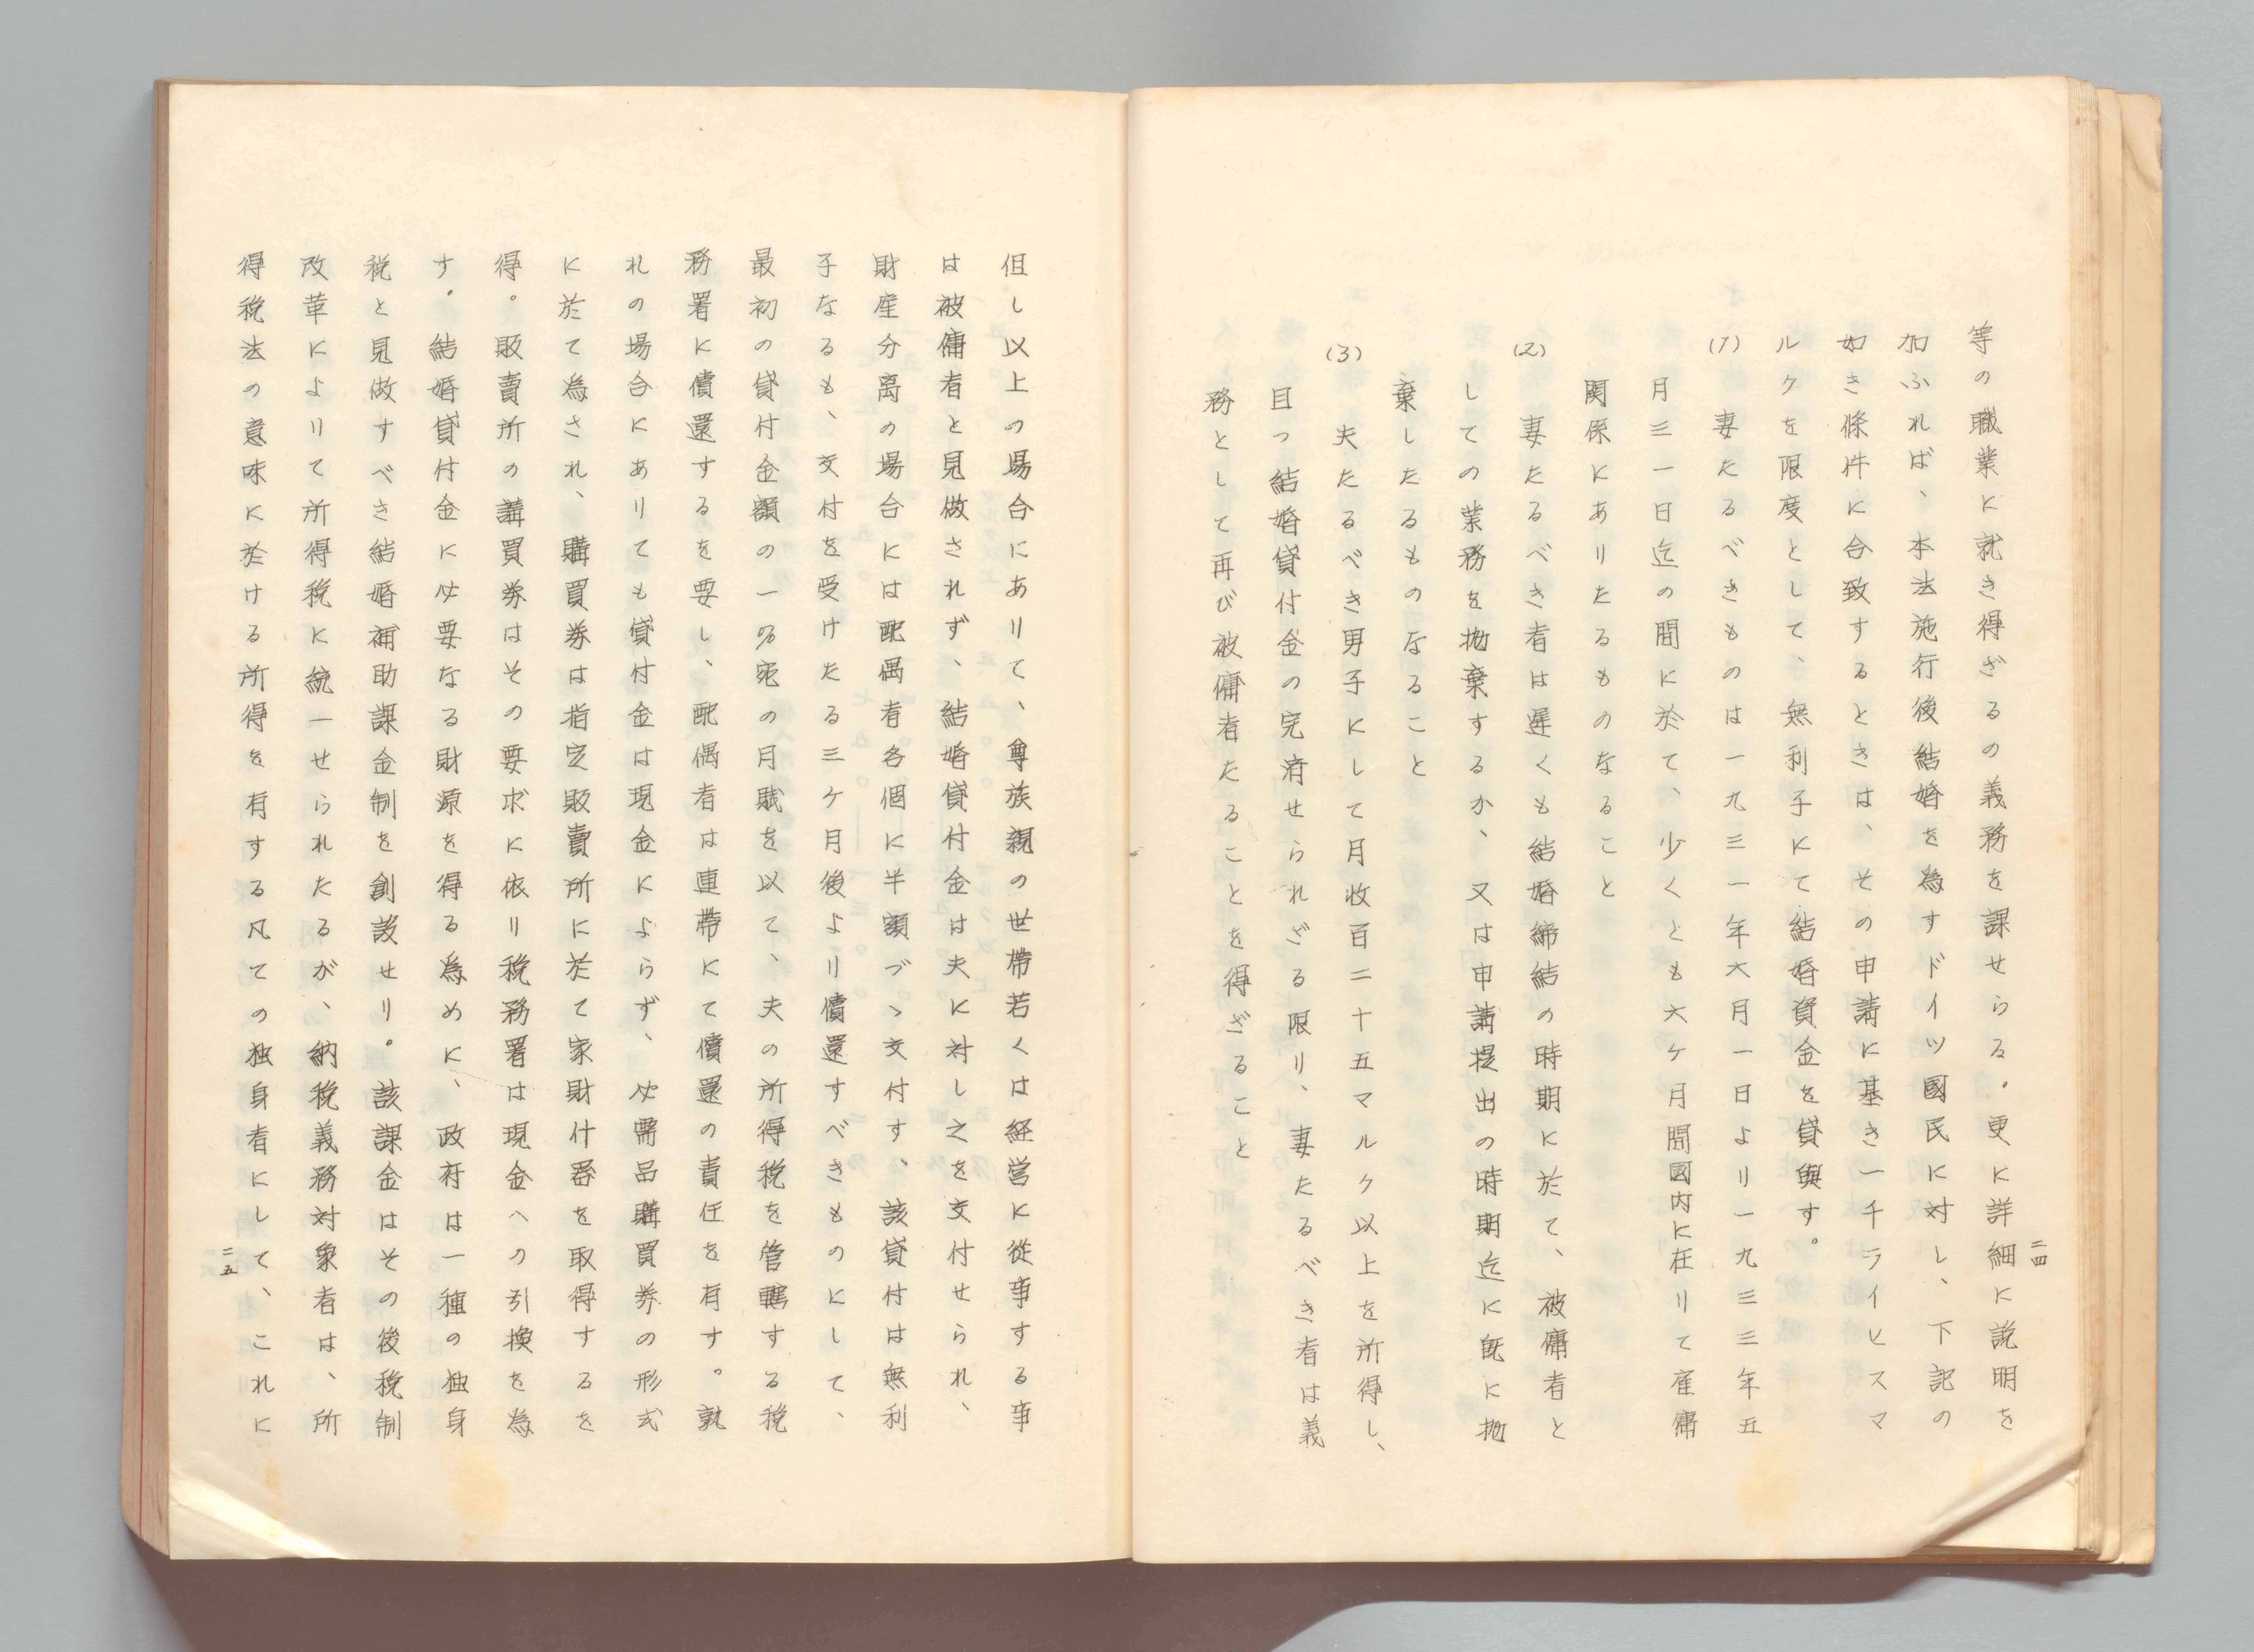 二四
等の職業に就き得ざるの義務を課せらる。更に詳細に説明を
加ふれば、本法施行後結婚を為すドイツ國民に対し、下記の
如き條件に合致するときは、その申請に基き一千ライヒスマ
ルクを限度として、無利子にて結婚資金を貸與す。
(1) 妻たるべきものは一九三一年六月一日より一九三三年五
月三一日迄の間に於て、少くとも六ケ月間國内に在りて雇傭
関係にありたるものなること
(2) 妻たるべき者は遅くも結婚締結の時期に於て、被傭者と
しての業務を抛棄するか、又は申請提出の時期迄に既に抛
棄したるものなること
(3) 夫たるべき男子にして月收百二十五マルク以上を所得し、
目つ結婚貸付金の完済せられざる限り、妻たるべき者は義
務として再び被傭者たることを得ざること
但し以上の場合にありて、尊族親の世帯若くは経営に従事する事
は被傭者と見做されず、結婚貸付金は夫に対し之を交付せられ、
財産分离の場合には配偶者各個に半額づゝ交付す、該貸付は無利
子なるも、交付を受けたる三ケ月後より償還すべきものにして、
最初の貸付金額の一%宛の月賦を以て、夫の所得税を管轄する税
務署に償還するを要し、配偶者は連帯にて償還の責任を有す。孰
れの場合にありても貸付金は現金によらず、必需品購買券の形式
に於て為され、購買券は指定販賣所に於て家財什器を取得するを
得。販賣所の講買券はその要求に依り税務署は現金への引換を為
す。結婚貸付金に必要なる財源を得る為めに、政府は一種の独身
税と見做すべき結婚補助課金制を創設せり。該課金はその後税制
改革によりて所得税に統一せられたるが、納税義務対象者は、所
得税法の意味に於ける所得を有する凡ての独身者にして、これに
二五